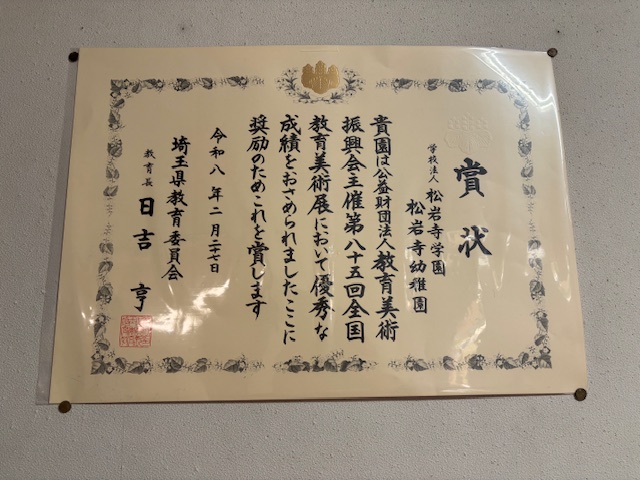 賞状
学校法人 松岩寺学園
松岩寺幼稚園
貴園は公益財団法人教育美術
振興会主催第八十五回全国
教育美術展において優秀な
成績をおさめられましたここに
奨励のためこれを賞します
令和八年二月二十七日
埼玉県教育委員会
教育長 日吉 亨